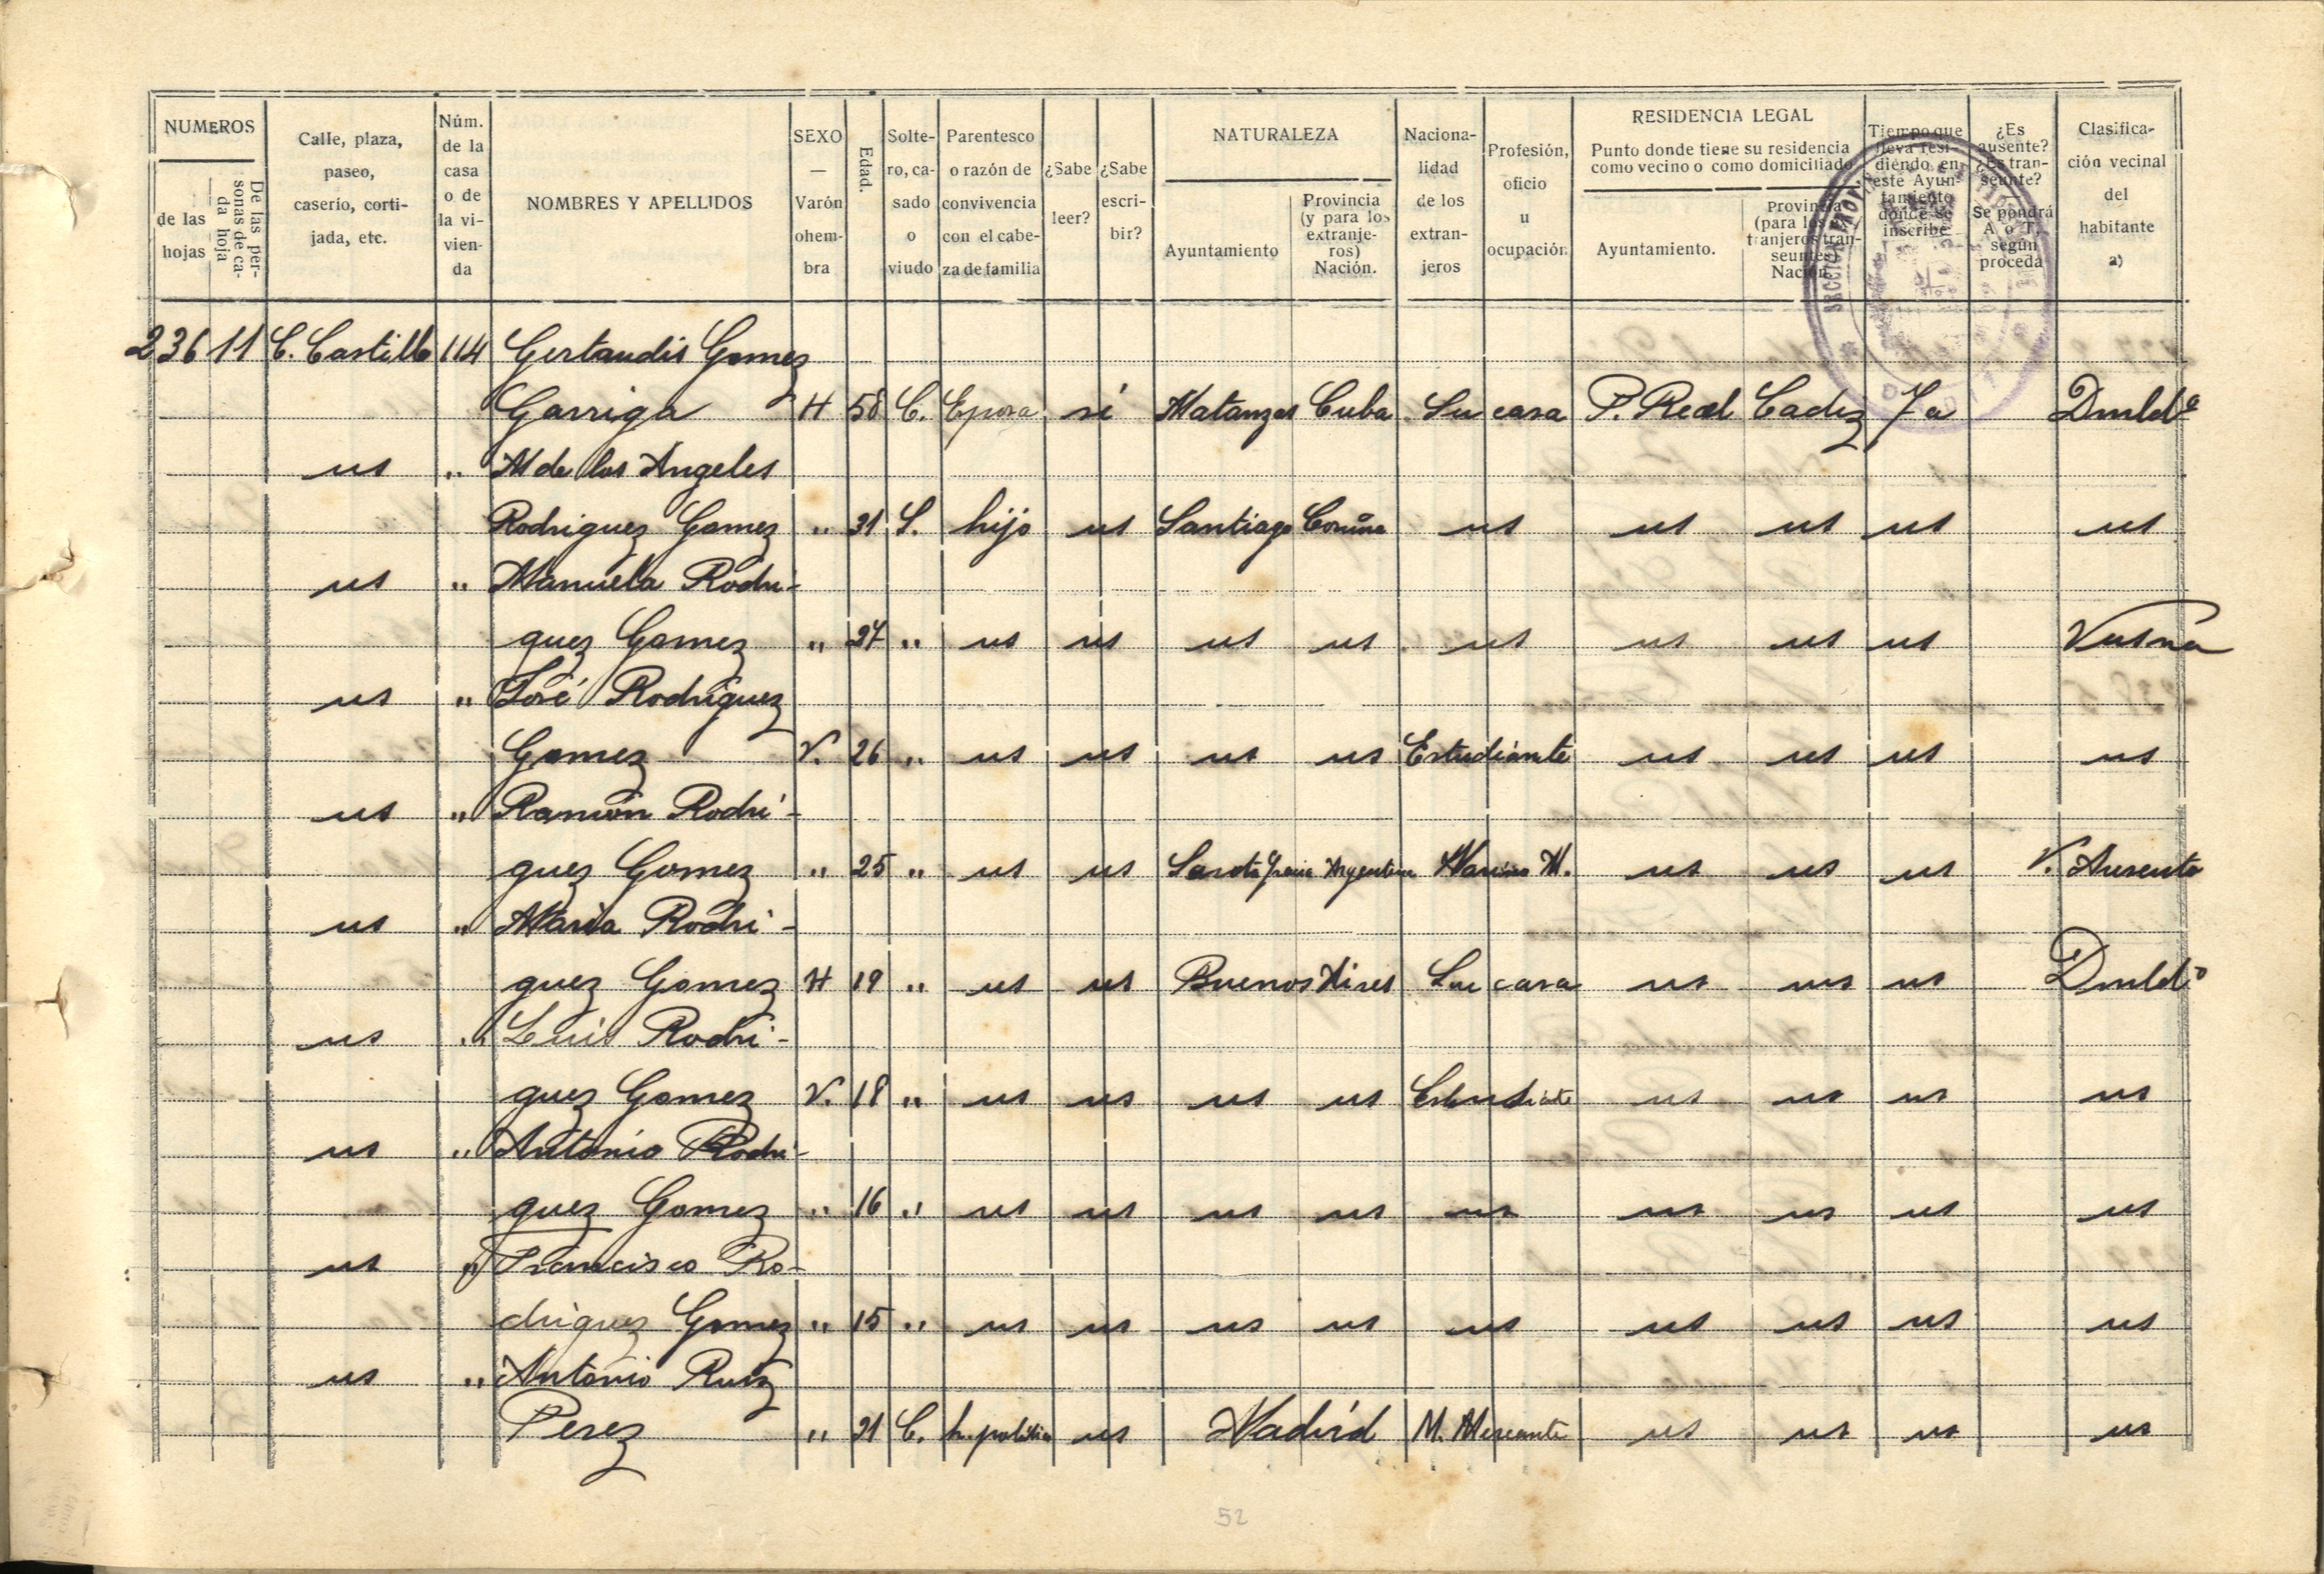 NUMEROS
de las hojas
De las personas de cada hoja
Calle, plaza, paseo, caserío, cortijada, etc.
Núm. de la casa o de la vivienda
NOMBRES Y APELLIDOS
SEXO — Varón o hembra
Edad.
Soltero, casado o viudo
Parentesco o razón de convivencia con el cabeza de familia
¿Sabe leer?
¿Sabe escribir?
NATURALEZA
Ayuntamiento
Provincia (y para los extranjeros) Nación.
Nacionalidad de los extranjeros
Profesión, oficio u ocupación
RESIDENCIA LEGAL
Punto donde tiene su residencia como vecino o como domiciliado
Ayuntamiento.
Provincia (para los extranjeros transeuntes) Nación
Tiempo que lleva residiendo en este Ayuntamiento donde se inscribe
¿Es ausente? ¿Es transeunte? Se pondrá A o T, según proceda
Clasificación vecinal del habitante a)
236 11 C. Castillo 114 Gertaudis Gomez
Garriga H 58 C. Epora si Matanzas Cuba Su casa P. Real Cadiz 7 a Dmldª
us " M de los Angeles
Rodriguez Gomez " 31 S. hijo us Santiago Coruña us us us us us
us " Manuela Rodri-
guez Gomez " 27 " us us us us us us us us Vesna
us " José Rodriguez
Gomez V. 26 " us us us us Estudiante us us us us
us " Ramón Rodri-
guez Gomez " 25 " us us Argentina Marino M. us us us V. Ausente
us " Maria Rodri-
guez Gomez H 19 " us us Buenos Aires Su casa us us us Dmldº
us " Luis Rodri-
guez Gomez V. 18 " us us us us Estudiante us us us us
us " Antonio Rodri-
guez Gomez " 16 " us us us us us us us us us
us " Francisco Ro-
driguez Gomez " 15 " us us us us us us us us us
us " Antonio Ruiz
Perez " 21 C. h. politico us Madrid M. Mercante us us us us
52